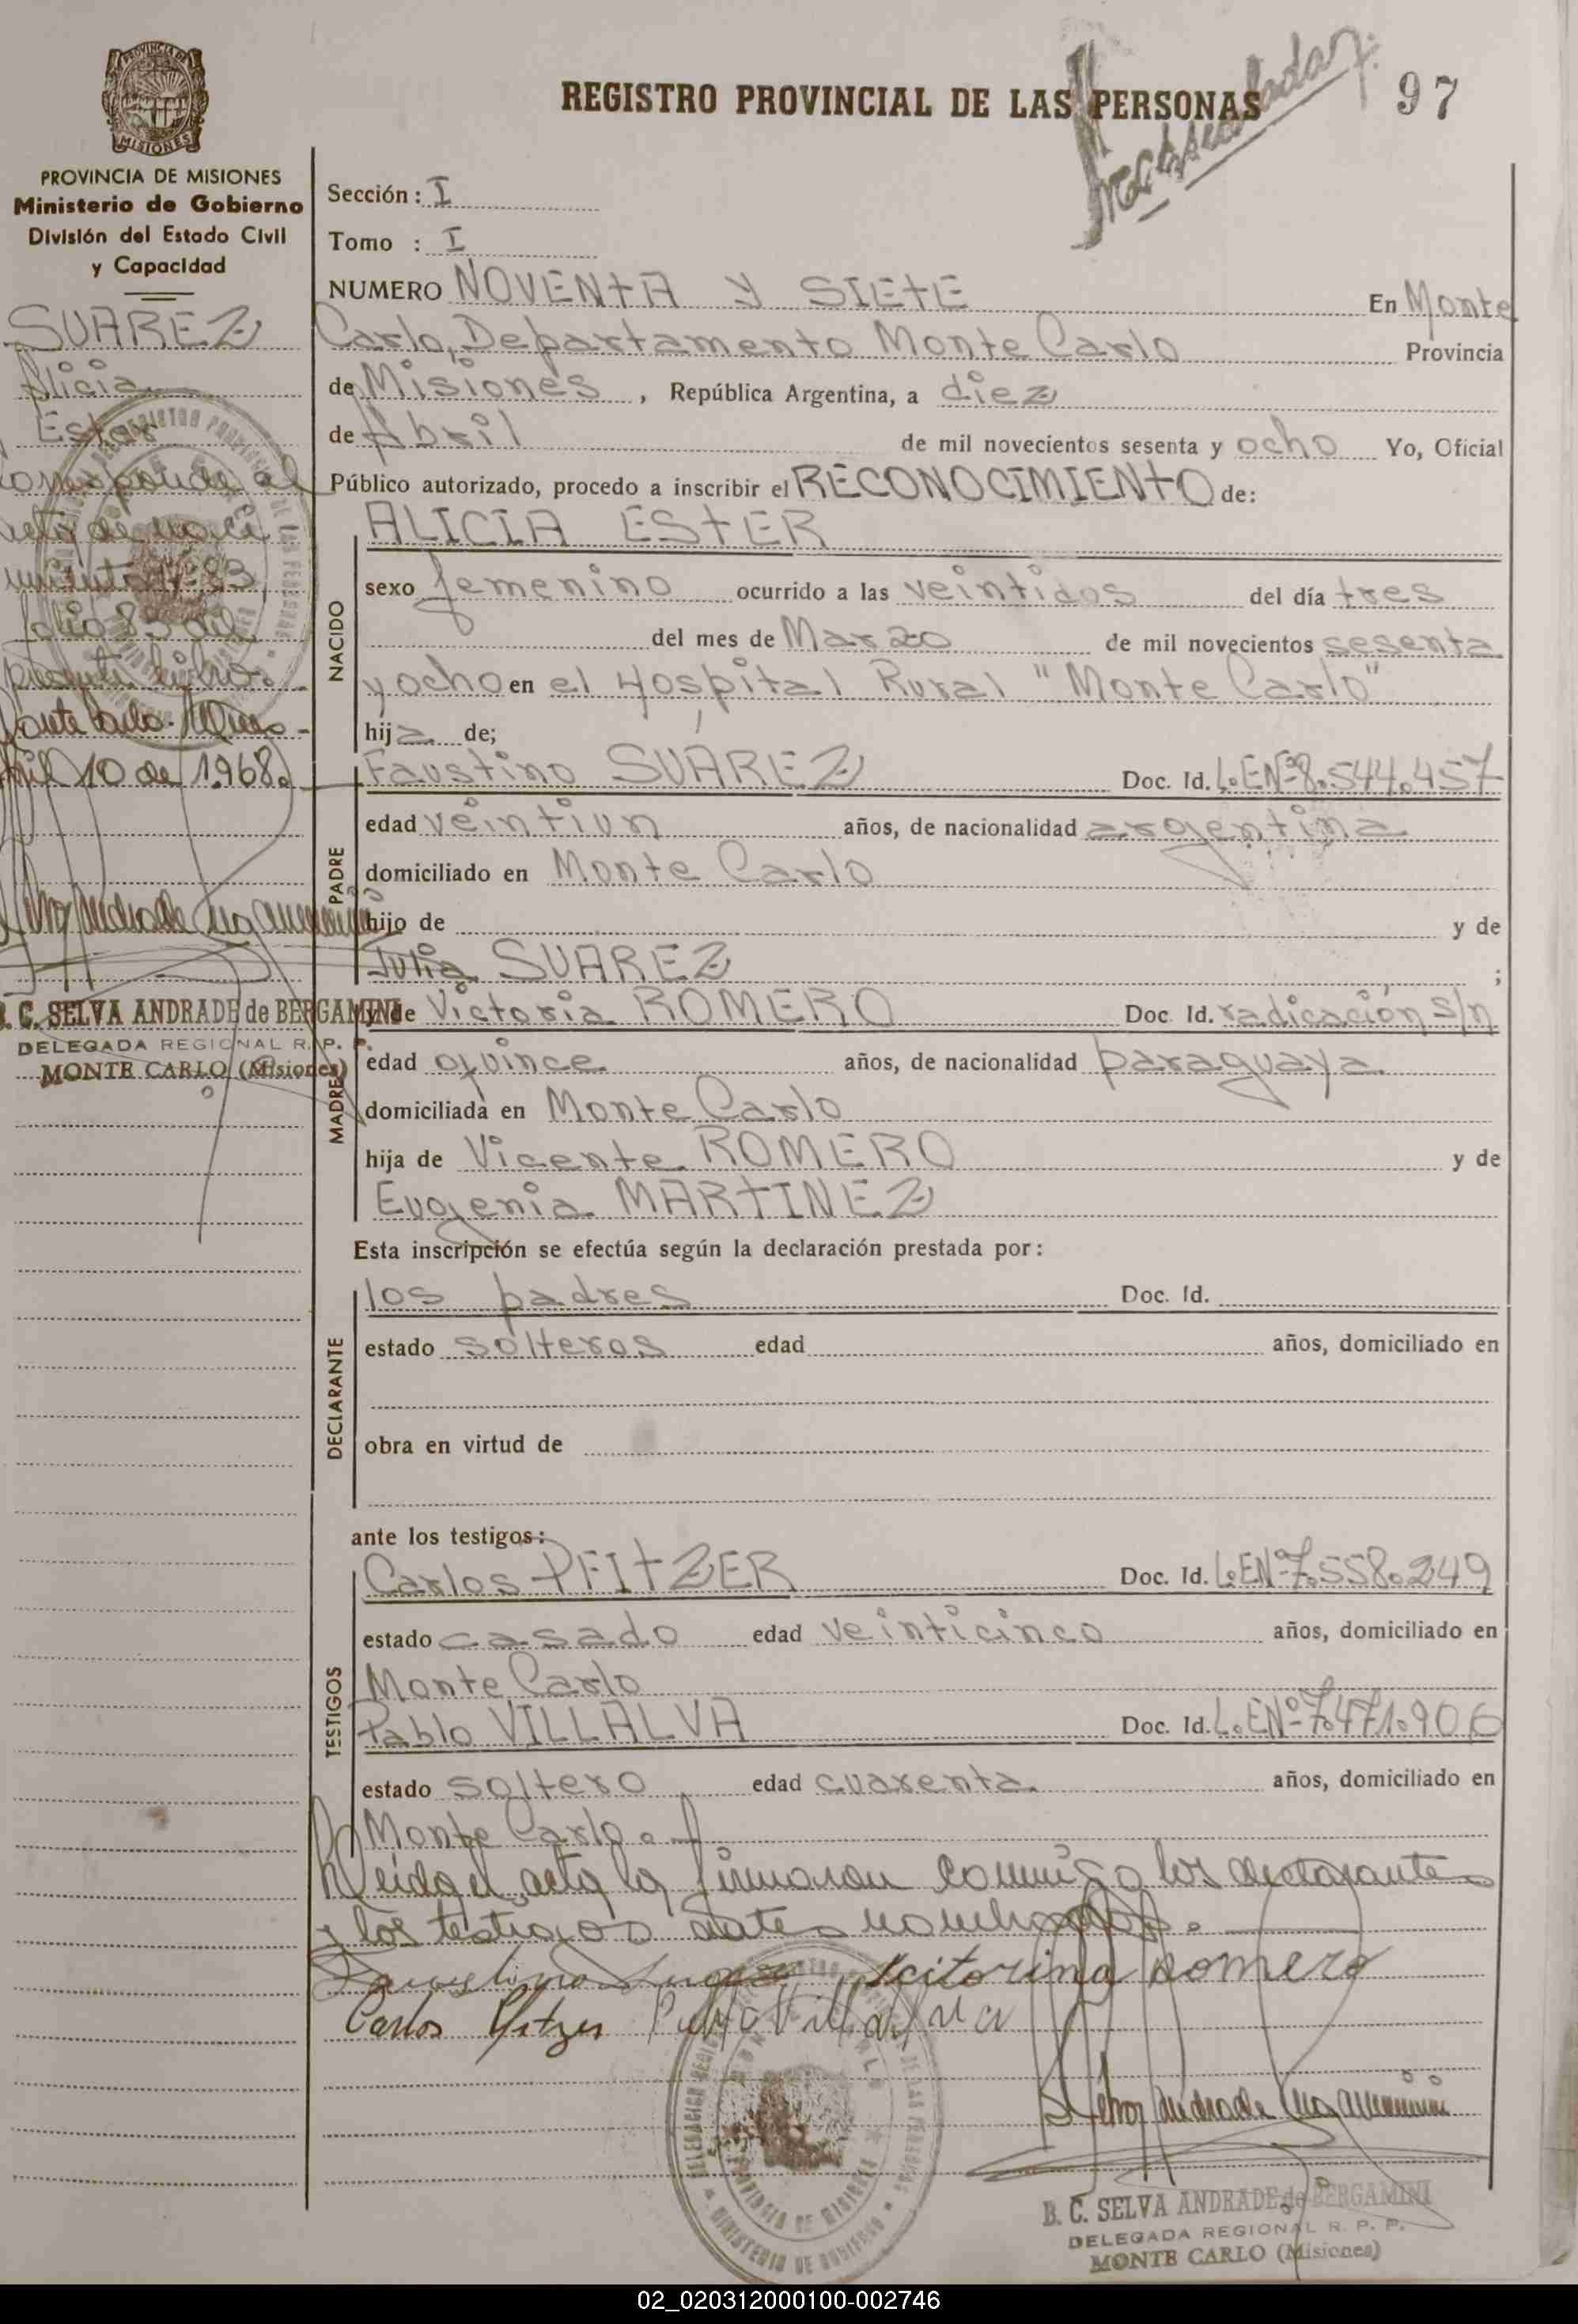 REGISTRO PROVINCIAL DE LAS PERSONAS
97
PROVINCIA DE MISIONES
Ministerio de Gobierno
División del Estado Civil
y Capacidad
SUAREZ
Alicia
Ester
corresponde al
acta de naci
miento Nº 83
folio 83 del
presente libro.
Monte Carlo.
Abril 10 de 1968.
B. C. SELVA ANDRADE de BERGAMINI
DELEGADA REGIONAL R. P. P.
MONTE CARLO (Misiones)
Sección: I
Tomo : I
NUMERO NOVENTA Y SIETE En Monte
Carlo, Departamento Monte Carlo Provincia
de Misiones, República Argentina, a diez
de Abril de mil novecientos sesenta y ocho Yo, Oficial
Público autorizado, procedo a inscribir el RECONOCIMIENTO de:
NACIDO
ALICIA ESTER
sexo femenino ocurrido a las veintidos del día tres
del mes de Marzo de mil novecientos sesenta
y ocho en el Hospital Rural "Monte Carlo"
hija de;
PADRE
Faustino SUAREZ Doc. Id. L.E.Nº 8.544.457
edad veintiun años, de nacionalidad argentina
domiciliado en Monte Carlo
hijo de y de
Julia SUAREZ ;
MADRE
y de Victoria ROMERO Doc. Id. radicación s/n
edad quince años, de nacionalidad paraguaya
domiciliada en Monte Carlo
hija de Vicente ROMERO y de
Eugenia MARTINEZ
Esta inscripción se efectúa según la declaración prestada por:
DECLARANTE
los padres Doc. Id.
estado solteros edad años, domiciliado en
obra en virtud de
ante los testigos:
TESTIGOS
Carlos PFITZER Doc. Id. L.E.Nº 7.558.249
estado casado edad veinticinco años, domiciliado en
Monte Carlo
Pablo VILLALVA Doc. Id. L.E.Nº 7.471.906
estado soltero edad cuarenta años, domiciliado en
Monte Carlo.
Leida el acta la firmaron conmigo los declarantes
y los testigos antes nombrados.
Faustino Suarez Romero
Carlos Pfitzer Pablo Villalva
B. C. SELVA ANDRADE de BERGAMINI
DELEGADA REGIONAL R. P. P.
MONTE CARLO (Misiones)
02_020312000100-002746